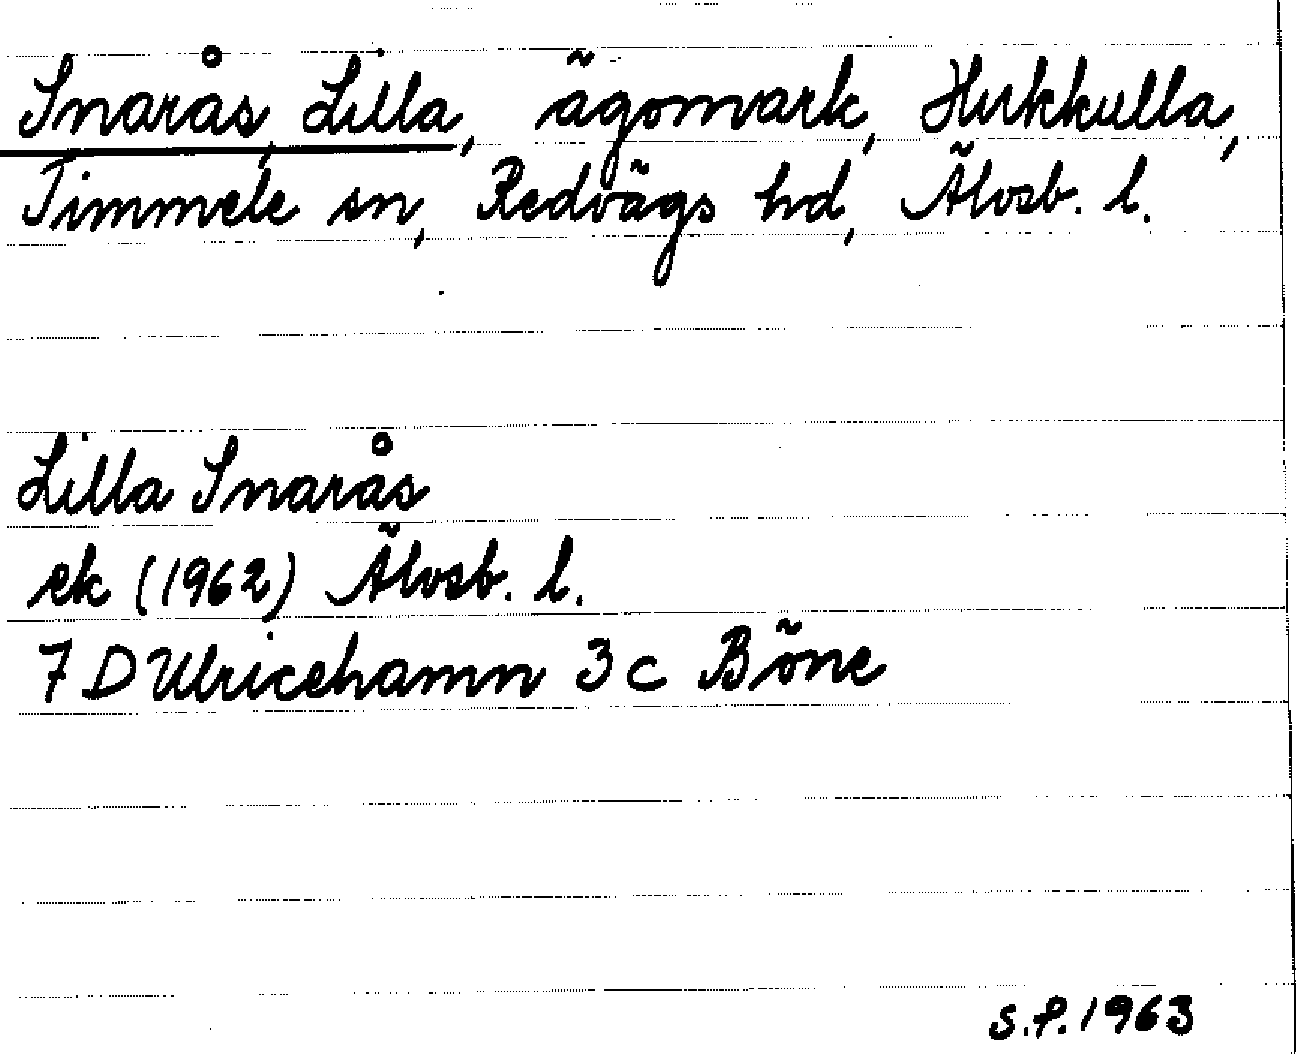 Snarås, Lilla, ägomark, Hukkulla,
Timmele sn, Redvägs hd, Älvsb. l.
Lilla Snarås
ek (1962) Älvsb. l.
7 D Ulricehamn 3 c Böne
S.P. 1963